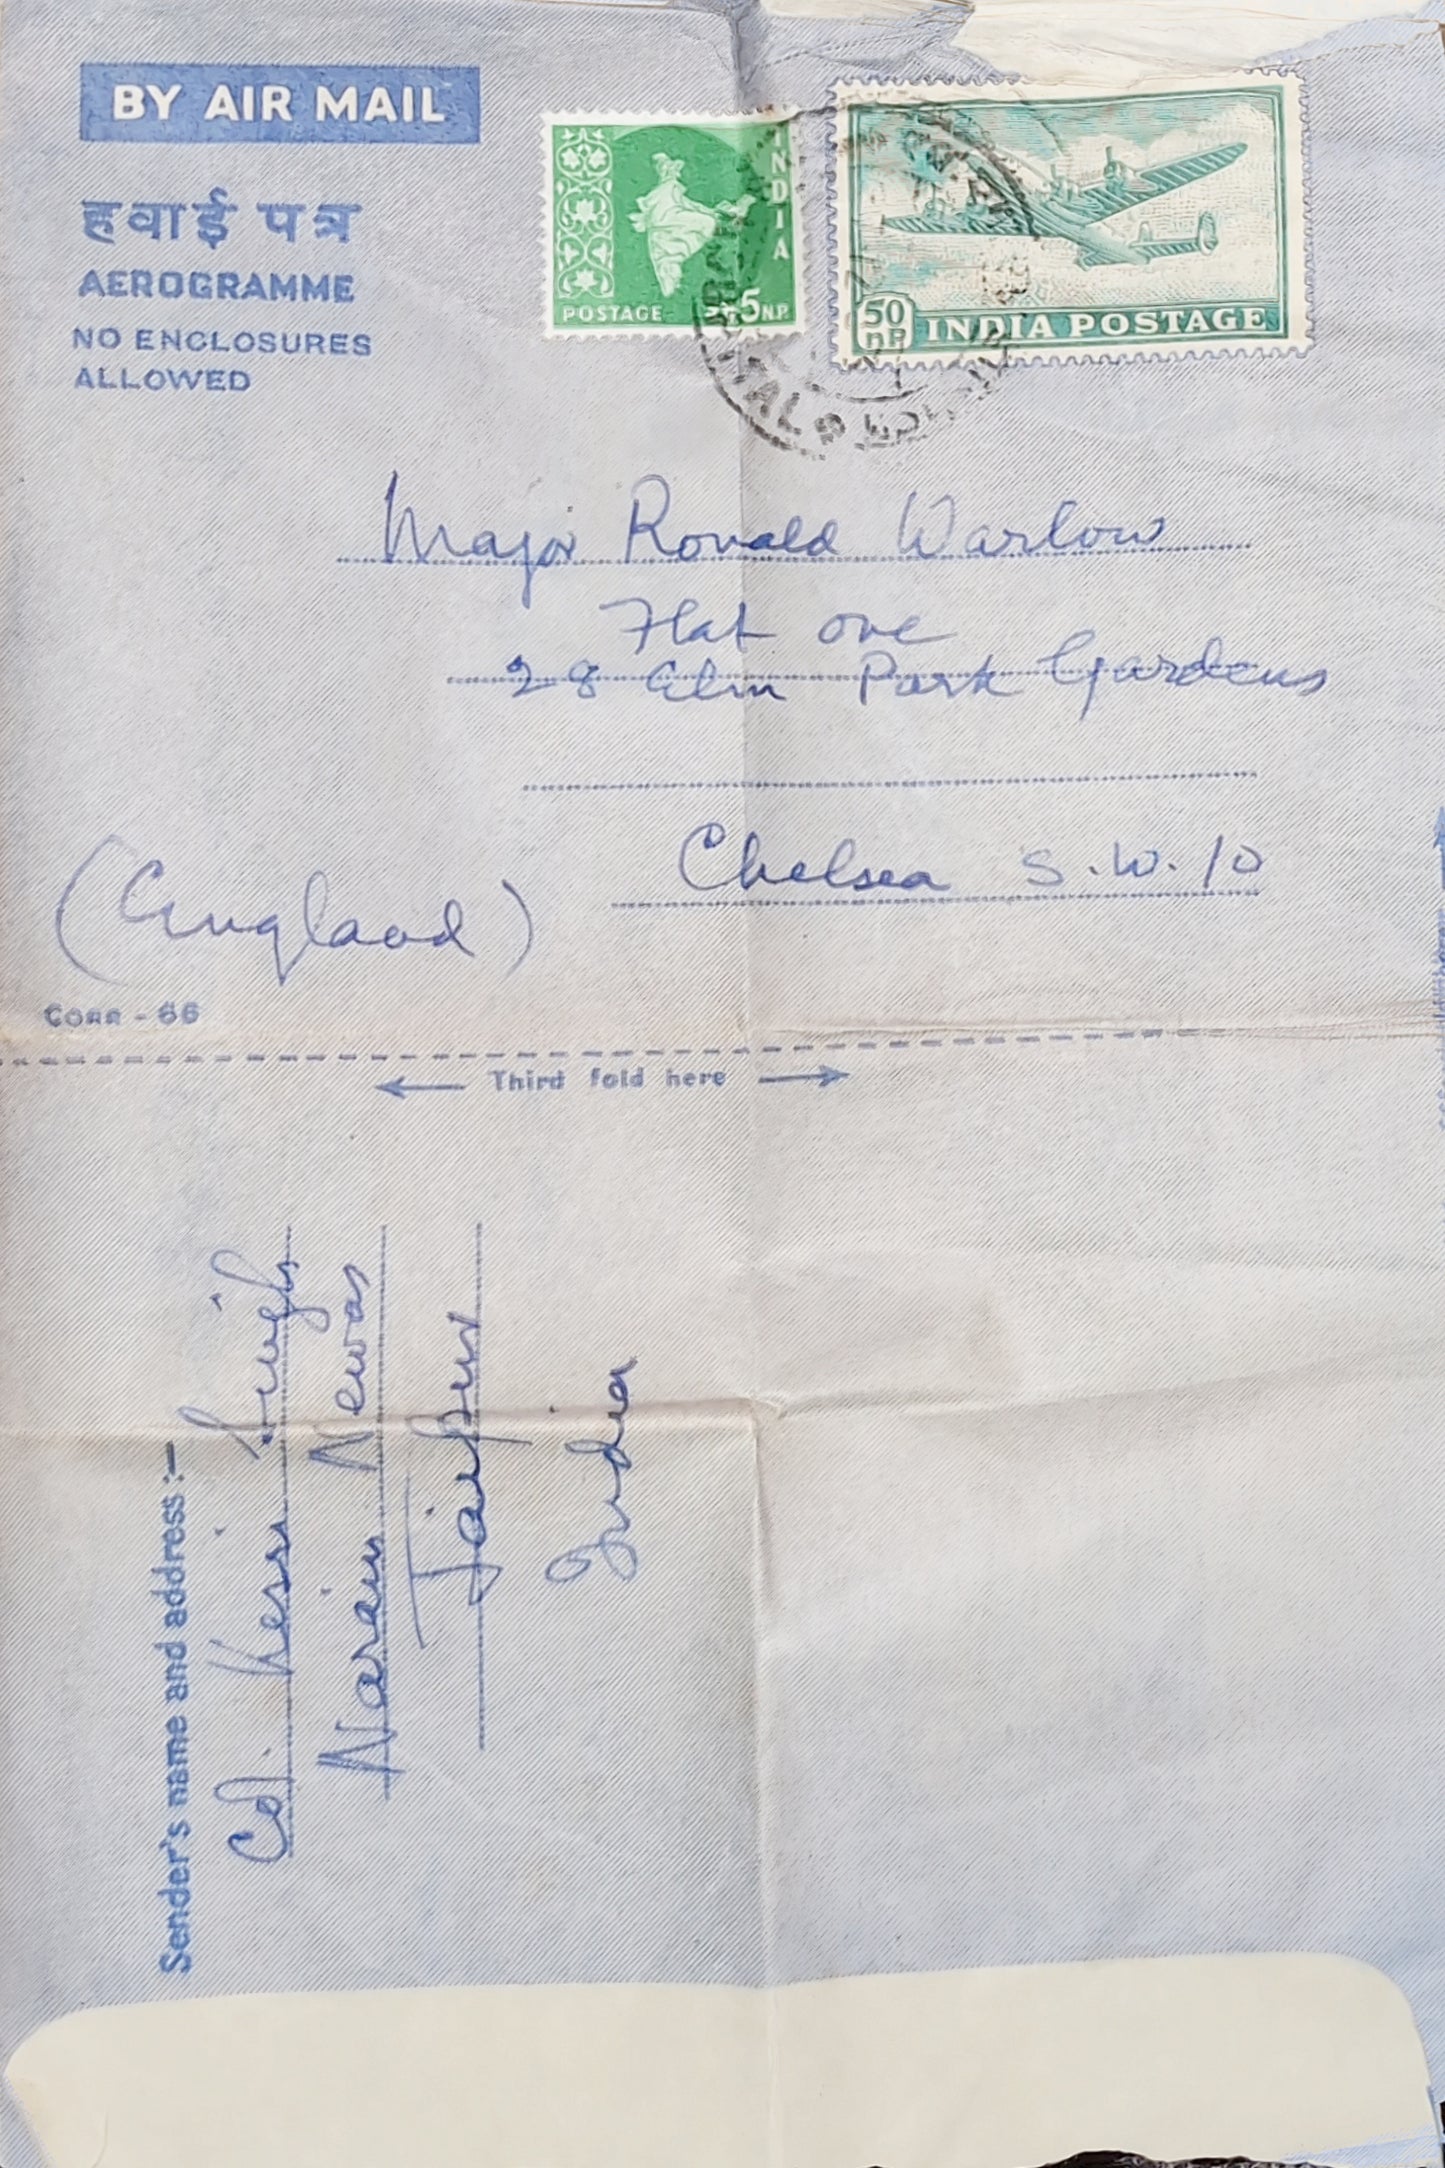 BY AIR MAIL
हवाई पत्र
AEROGRAMME
NO ENCLOSURES
ALLOWED
INDIA
POSTAGE 5 N.P.
50 nP INDIA POSTAGE
Major Ronald Warlow
Flat one
28 Elm Park Gardens
Chelsea S.W.10
(England)
CORR - 66
Third fold here
Sender's name and address :-
Col. Kesri Singh
Narain Newas
Jaipur
India